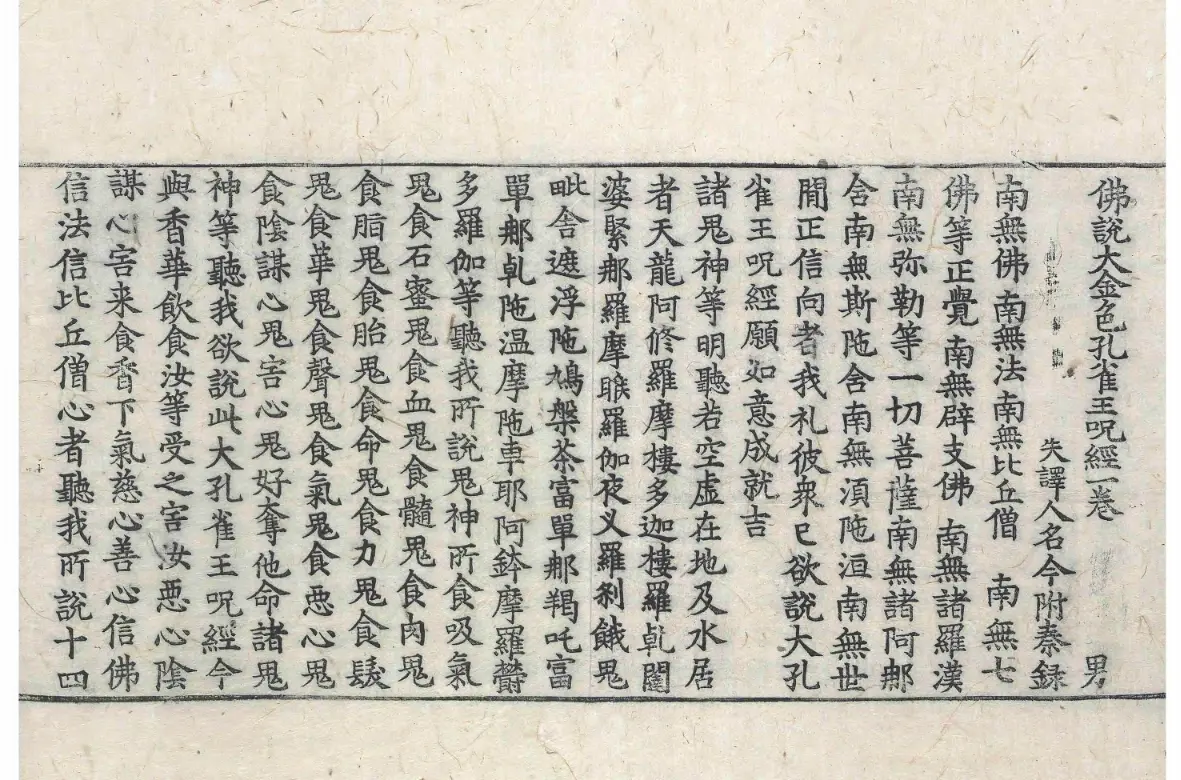 佛說大金色孔雀王呪經一卷 男
失譯人名今附秦録
南無佛南無法南無比丘僧 南無七
佛等正覺南無辟支佛 南無諸羅漢
南無弥勒等一切菩薩南無諸阿那
含南無斯陁含南無湏陁洹南無世
間正信向者我礼彼衆已欲說大孔
雀王呪經願如意成就吉
諸鬼神等明聽若空虚在地及水居
者天龍阿修羅摩樓多迦樓羅乹闥
婆緊那羅摩睺羅伽夜叉羅刹餓鬼
毗舍遮浮陁鳩槃茶富單那羯吒富
單那乹陁温摩陁車耶阿鉢摩羅欝
多羅伽等聽我所說鬼神所食吸氣
鬼食石蜜鬼食血鬼食髓鬼食肉鬼
食脂鬼食胎鬼食命鬼食力鬼食髮
鬼食華鬼食聲鬼食氣鬼食悪心鬼
食陰謀心鬼害心鬼好奪他命諸鬼
神等聽我欲說此大孔雀王呪經今
與香華飲食汝等受之害汝悪心陰
謀心害来食香下氣慈心善心信佛
信法信比丘僧心者聽我所說十四